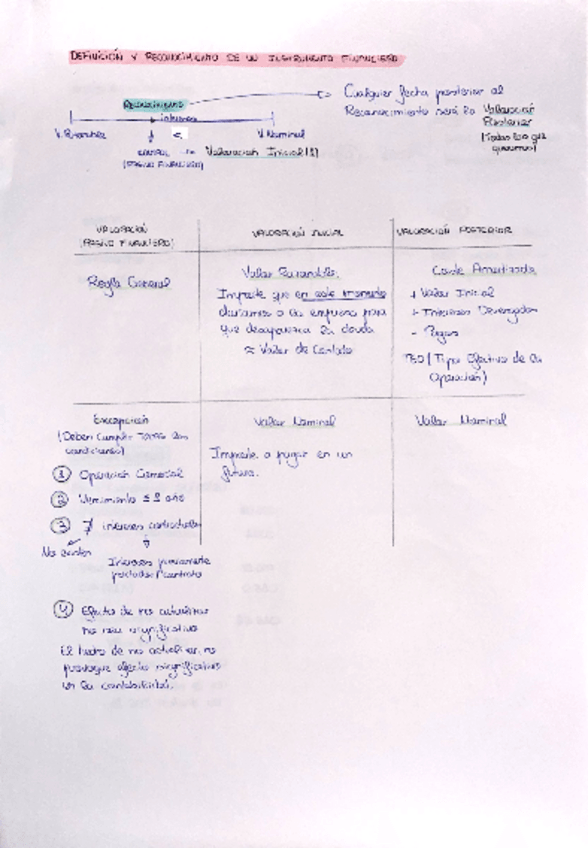 DEFINICIÓN Y RECONOCIMIENTO DE UN INSTRUMENTO FINANCIERO
Reconocimiento
Cualquier fecha posterior al
Reconocimiento será la Valoración
Posterior
intereses
V. Razonable
V. Nominal
Valoración Inicial
(PASIVO FINANCIERO)
VALORACIÓN
(PASIVO FINANCIERO)
VALORACIÓN INICIAL
VALORACIÓN POSTERIOR
Regla General
Valor Razonable:
Importe que en este momento
daríamos a la empresa para
que desaparezca la deuda
≈ Valor de Contado
Coste Amortizado
+ Valor Inicial
+ Intereses Devengados
- Pagos
TEO (Tipo Efectivo de la
Operación)
Excepción
(Deben Cumplir TODAS las
condiciones)
Valor Nominal
Importe a pagar en un
futuro.
Valor Nominal
1 Operación Comercial
2 Vencimiento ≤ 1 año
3 ∄ intereses contractuales
No existen
Intereses previamente
pactados/contrato
4 Efecto de no actualizar
no sea significativo
El hecho de no actualizar, no
produzca efecto significativo
en la contabilidad.